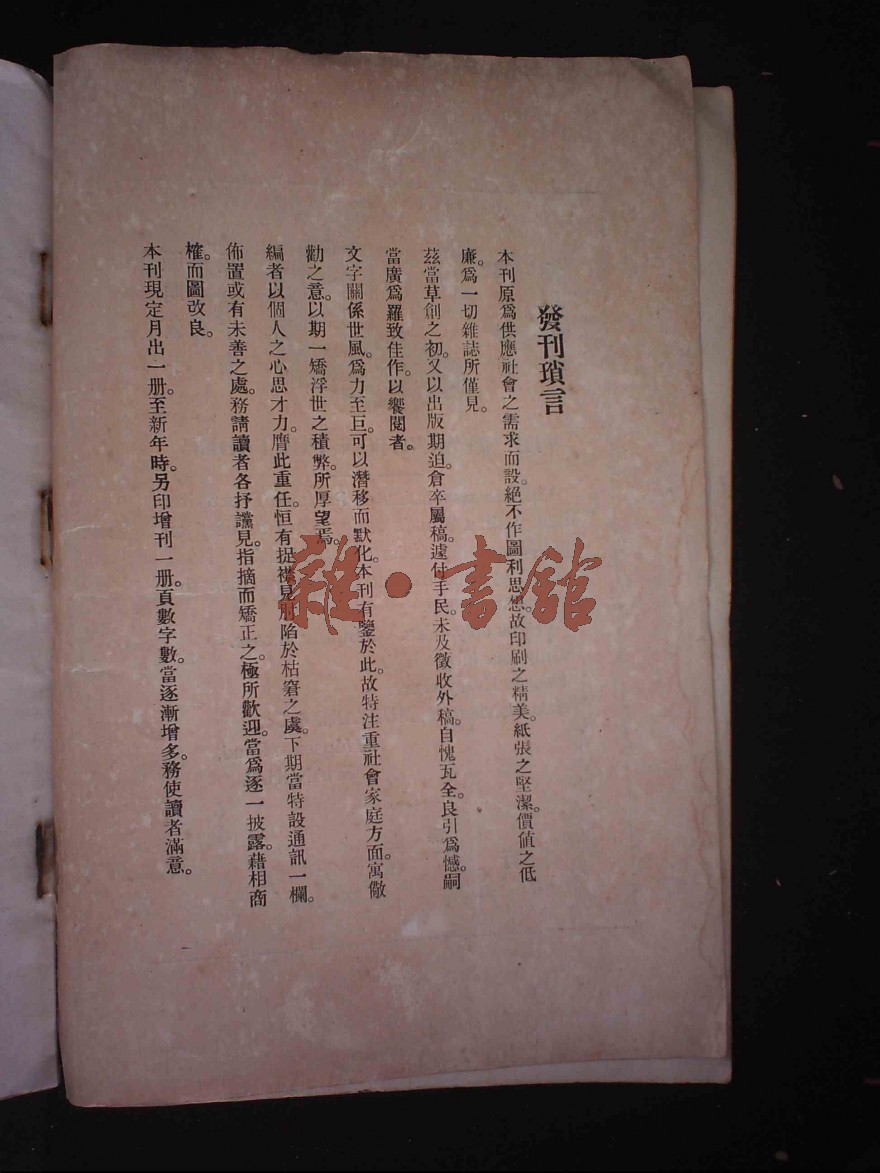 發刊瑣言
本刊原爲供應社會之需求而設。絕不作圖利思想。故印刷之精美。紙張之堅潔。價值之低
廉。爲一切雜誌所僅見。
茲當草創之初。又以出版期迫。倉卒屬稿。遽付手民。未及徵收外稿。自愧瓦全。良引爲憾。嗣
當廣爲羅致佳作。以饗閱者。
文字關係世風。爲力至巨。可以潛移而默化。本刊有鑒於此。故特注重社會家庭方面。寓儆
勸之意。以期一矯浮世之積弊。所厚望焉。
編者以個人之心思才力。膺此重任。恒有捉襟見肘陷於枯窘之虞。下期當特設通訊一欄。
佈置或有未善之處。務請讀者各抒讜見。指摘而矯正之。極所歡迎。當爲逐一披露。藉相商
榷。而圖改良。
本刊現定月出一册。至新年時。另印增刊一册。頁數字數。當逐漸增多。務使讀者滿意。
雜·書館